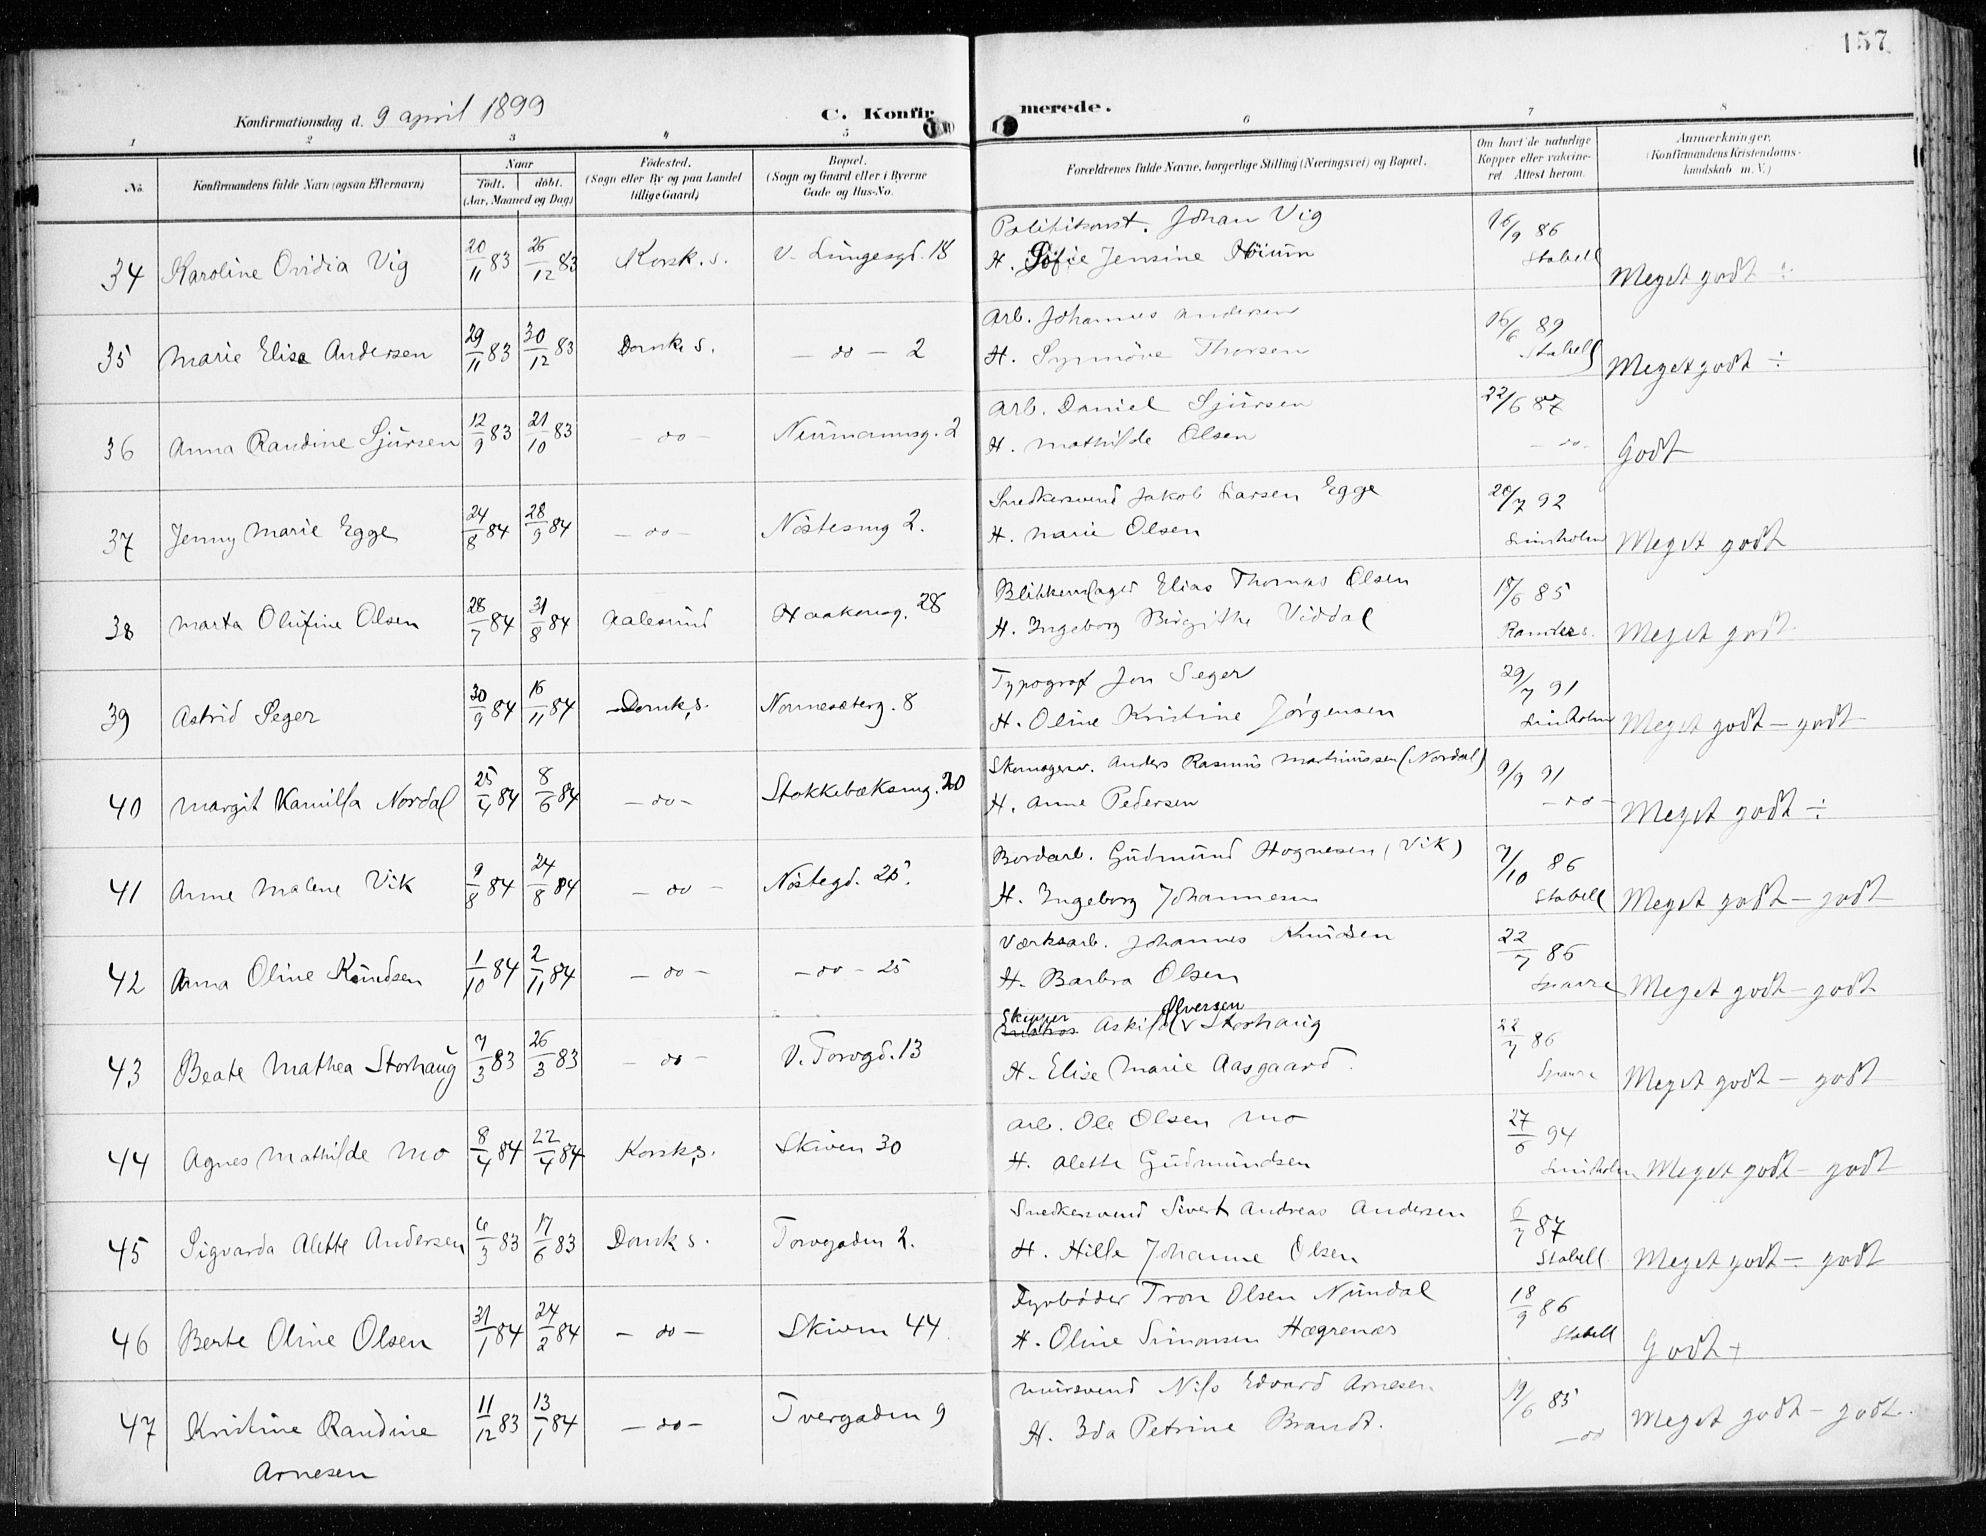 157
Konfirmationsdag d. 9 april 1899
C. Konfirmerede.
1 2 3 4 5 6 7 8
No.
Konfirmandens fulde Navn (ogsaa Efternavn)
Naar
födt. döbt.
(Aar, Maaned og Dag)
Födested.
(Sogn eller By og paa Landet
tillige Gaard)
Bopæl.
(Sogn og Gaard eller i Byerne
Gade og Hus-No.
Forældrenes fulde Navne, borgerlige Stilling (Næringsvei) og Bopæl.
Om havt de naturlige
Kopper eller vaccine-
ret Attest herom.
Anmærkninger.
(Konfirmandens Kristendoms-
kundskab m. V.)
34 Karoline Ovidia Vig 20/11 83 26/12 83 Korsk. s. V. Lungegd. 18
Politikonst. Johan Vig 16/9 86
H. Sofie Jensine Höium Stabell Meget godt ÷
35 Marie Elise Andersen 29/11 83 30/12 83 Domk s. - do - 2
Arb. Johannes Andersen 16/6 89
H. Synnöve Thorsen Stabell Meget godt ÷
36 Anna Randine Sjürsen 12/9 83 21/10 83 - do - Neumannsg. 2
Arb. Daniel Sjürsen 22/6 87
H. Mathilde Olsen - do - Godt
37 Jenny Marie Egge 24/8 84 28/9 84 - do - Nöstesmg 2.
Snedkersvend Jakob Larsen Egge 20/7 92
H. Marie Olsen Meget godt
38 Marta Olufine Olsen 28/7 84 31/8 84 Aalesund Haakonsg. 28
Blikkenslager Elias Thomas Olsen 18/6 85
H. Ingeborg Birgithe Viddal Randers. Meget godt
39 Astrid Seger 30/9 84 16/11 84 Domk s. Nonneseterg. 8
Typograf Jon Seger 29/7 91
H. Oline Kristine Jörgensen Meget godt - godt
40 Margit Kamilla Nordal 25/4 84 8/6 84 - do - Stokkebæksmg. 20
Skomagersv. Anders Rasmus Martinussen (Nordal) 9/9 91
H. Anne Pedersen - do - Meget godt ÷
41 Anne Malene Vik 9/8 84 24/8 84 - do - Nöstegd. 25.
Bordarb. Gudmund Hognesen (Vik) 7/10 86
H. Ingeborg Johannesen Stabell Meget godt - godt
42 Anna Oline Knudsen 1/10 84 2/11 84 - do - - do - 25
Værksarb. Johannes Knudsen 22/7 86
H. Barbra Olsen Meget godt - godt
43 Beate Mathea Storhaug 7/3 83 26/3 83 - do - V. Torvgd. 13
Skipper Olversen
Askild Storhaug 22/7 86
H. Elise Marie Aasgaard. Meget godt - godt
44 Agnes Mathilde Mo 8/4 84 22/4 84 Korsk s. Skiven 30
Arb. Ole Olsen Mo 27/6 94
H. Alette Gudmundsen Meget godt - godt
45 Sigvarda Alette Andersen 6/3 83 17/6 83 Domk s. Torvgaden 2.
Snedkersvend Sivert Andreas Andersen 6/7 87
H. Hille Johanne Olsen Stabell Meget godt ÷ godt
46 Berte Oline Olsen 31/1 84 24/2 84 - do - Skiven 44.
Fyrböder Tron Olsen Nundal 18/9 86
H. Oline Simonsen Hægrenæs Stabell Godt +
47 Kristine Randine 11/12 83 13/1 84 - do - Tvergaden 9
Arnesen
Mursvend Nils Edvard Arnesen 19/6 85
H. Ida Petrine Brandt. - do Meget godt - godt.